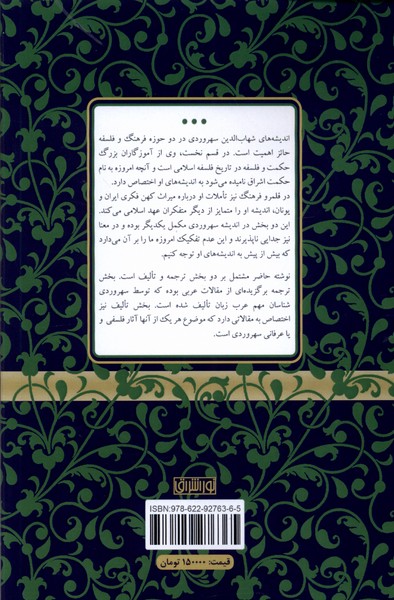 اندیشه‌های شهاب‌الدین سهروردی در دو حوزه فرهنگ و فلسفه
حائز اهمیت است. در قسم نخست، وی از آموزگاران بزرگ
حکمت و فلسفه در تاریخ فلسفه اسلامی است و آنچه امروزه به نام
حکمت اشراق نامیده می‌شود به اندیشه‌های او اختصاص دارد.
در قلمرو فرهنگ نیز تأملات او درباره میراث کهن فکری ایران و
یونان، اندیشه او را متمایز از دیگر متفکران عهد اسلامی می‌کند.
این دو بخش در اندیشه سهروردی مکمل یکدیگر بوده و در معنا
نیز جدایی ناپذیرند و این عدم تفکیک امروزه ما را بر آن می‌دارد
که بیش از پیش به اندیشه‌های او توجه کنیم.
نوشته حاضر مشتمل بر دو بخش ترجمه و تألیف است. بخش
ترجمه برگزیده‌ای از مقالات عربی بوده که توسط سهروردی
شناسان مهم عرب زبان تألیف شده است. بخش تألیف نیز
اختصاص به مقالاتی دارد که موضوع هر یک از آنها آثار فلسفی و
یا عرفانی سهروردی است.
نور اشراق
ISBN: 978-622-92763-6-5
قیمت: ۱۵۰۰۰۰ تومان